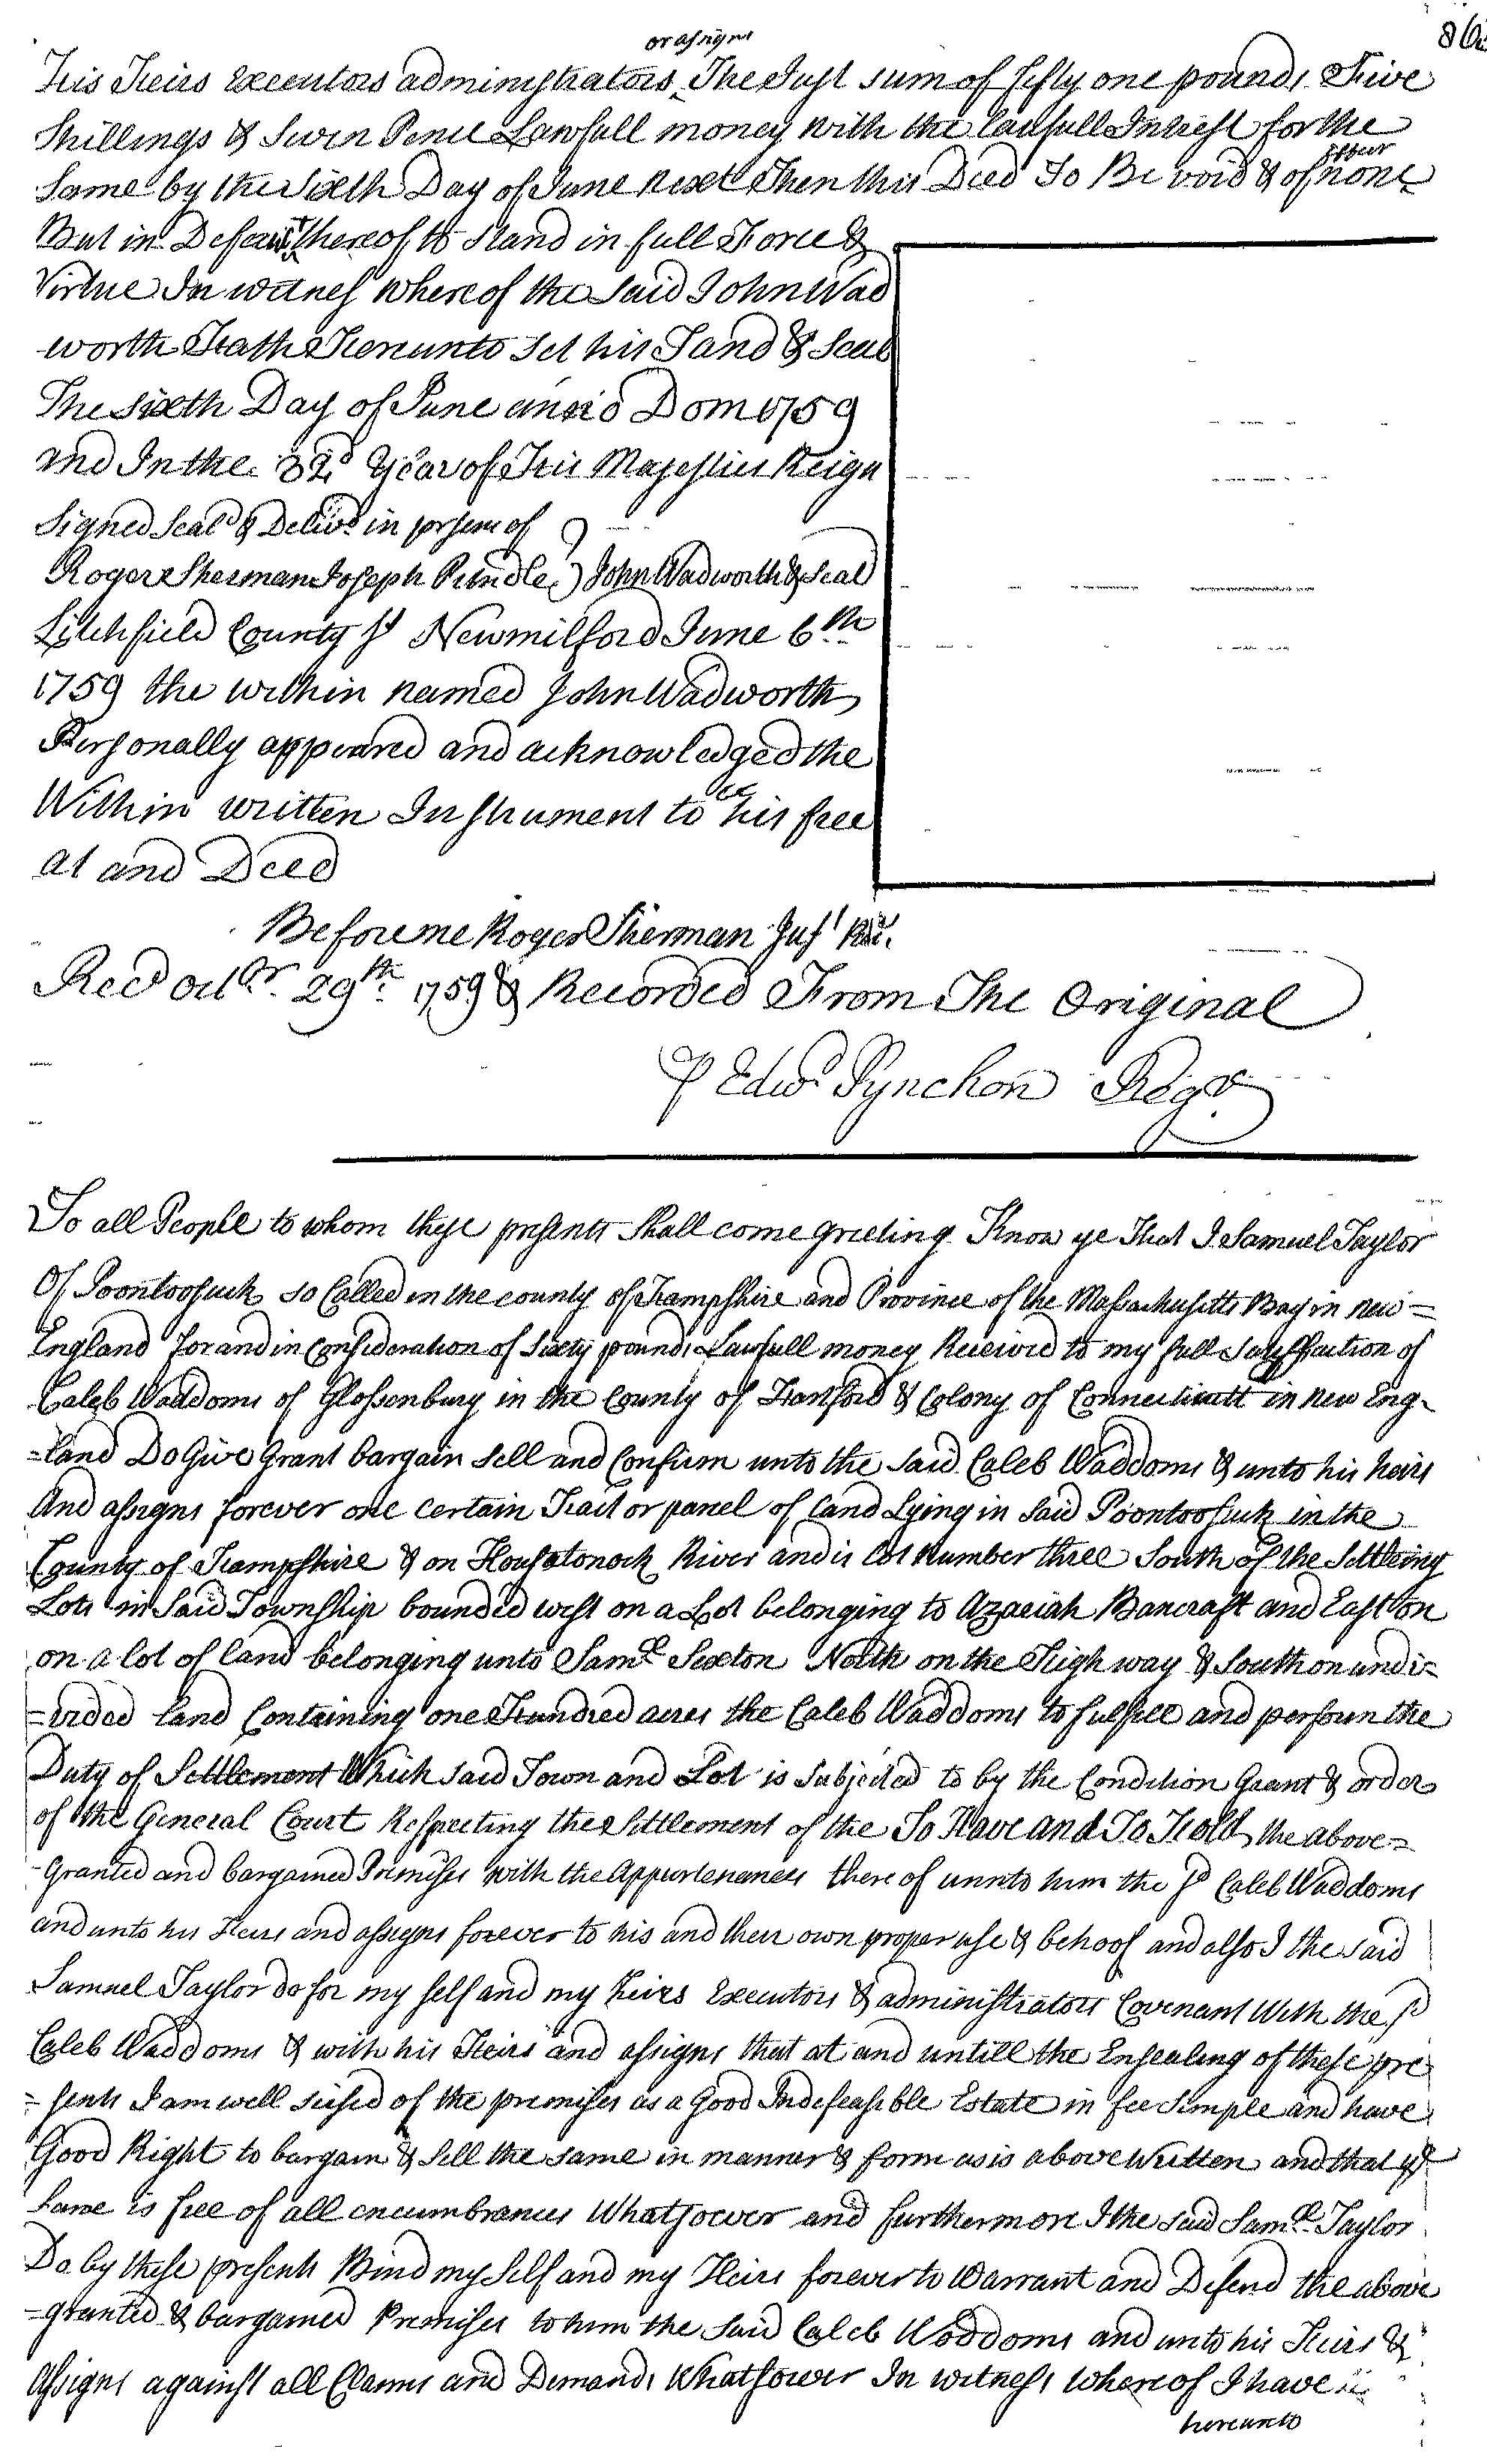 or assigns
His Heirs Executors administrators The Just sum of fifty one pounds Five
Shillings & Seven Pence Lawfull money with the lawfull Intrest for the
Same by the Sixth Day of June next Then this Deed To Be void & of none
Effect
But in Default thereof to stand in full Force &
Virtue In witness whereof the Said John Wad
worth Hath Hereunto Set his Hand & Seal
The Sixth Day of June anno Dom 1759
and In the 32d Year of His Majesties Reign
Signed Seald & Delivd in presence of
Roger Sherman Joseph Prindle John Wadworth & Seal
Litchfield County ss Newmilford June 6th
1759 the within named John Wadworth
Personally appeared and acknowledged the
Within written Instrument to be his free
act and Deed
Before me Roger Sherman Just
Recd Octbr 29th 1759 & Recorded From The Original
P Edwd Pynchon Regr
To all People to whom these presents Shall come greeting Know ye That I Samuel Taylor
Of Poontoosuck so Called in the county of Hampshire and Province of the Massachusetts Bay in new =
England for and in Consideration of Sixty pounds Lawfull money Received to my full Satisffaction of
Caleb Waddoms of Glossenbury in the County of Hartford & Colony of Connecticutt in new Eng-
=land Do Give Grant bargain Sell and Confirm unto the Said Caleb Waddoms & unto his heirs
And assigns forever one certain Tract or parcel of land Lying in Said Poontoosuck in the
County of Hampshire & on Housatonock River and is Lot Number three South of the Settleing
Lots in Said Township bounded west on a Lot belonging to Azariah Bancraft and East on
on a lot of land belonging unto Saml Sexton North on the High way & South on undi=
=vided land Containing one Hundred acres the Caleb Waddoms to fulfill and perform the
Duty of Settlement Which said Town and Lot is Subjected to by the Condition Grant & order
of the General Court Respecting the Settlement of the To Have and To Hold the above=
Granted and bargained Premises with the Appurtenances there of unnto him the sd Caleb Waddoms
and unto his Heirs and assigns forever to his and their own proper use & behoof and also I the said
Samuel Taylor do for my self and my heirs Executors & administrators Covenant With the sd
Caleb Waddoms & with his Heirs and assigns that at and untill the Ensealing of these pre
=sents I am well seised of the premises as a Good Indefeasible Estate in fee Simple and have
Good Right to bargain & Sell the same in manner & form as is above Written and that ye
Same is free of all encumbrances Whatsoever and furthermore I the said Saml Taylor
Do by these presents Bind my Self and my Heirs forever to Warrant and Defend the above
=granted & bargained Premises to him the Said Caleb Waddoms and unto his Heirs &
Assigns against all Claims and Demands Whatsoever In witness whereof I have
hereunto